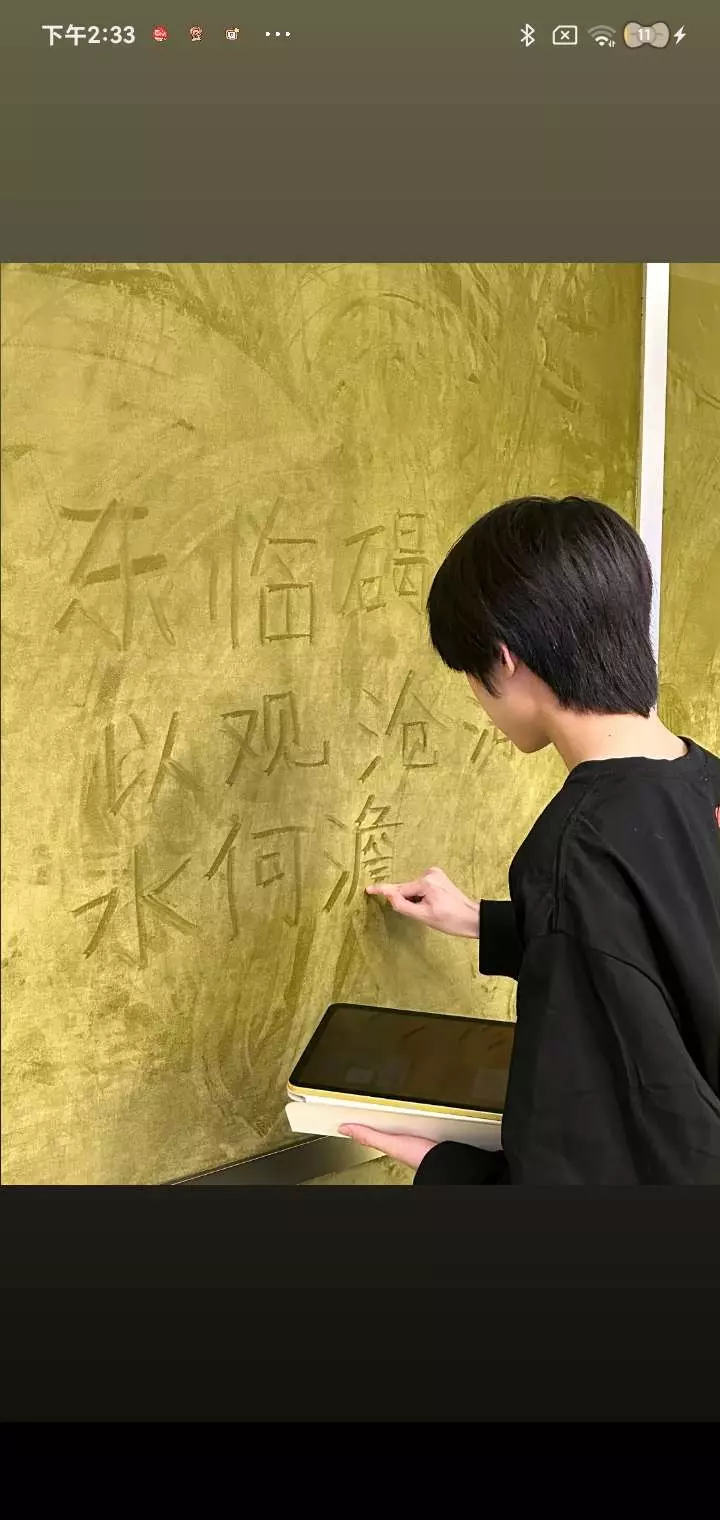 下午2:33
11
东临碣
以观沧海
水何澹